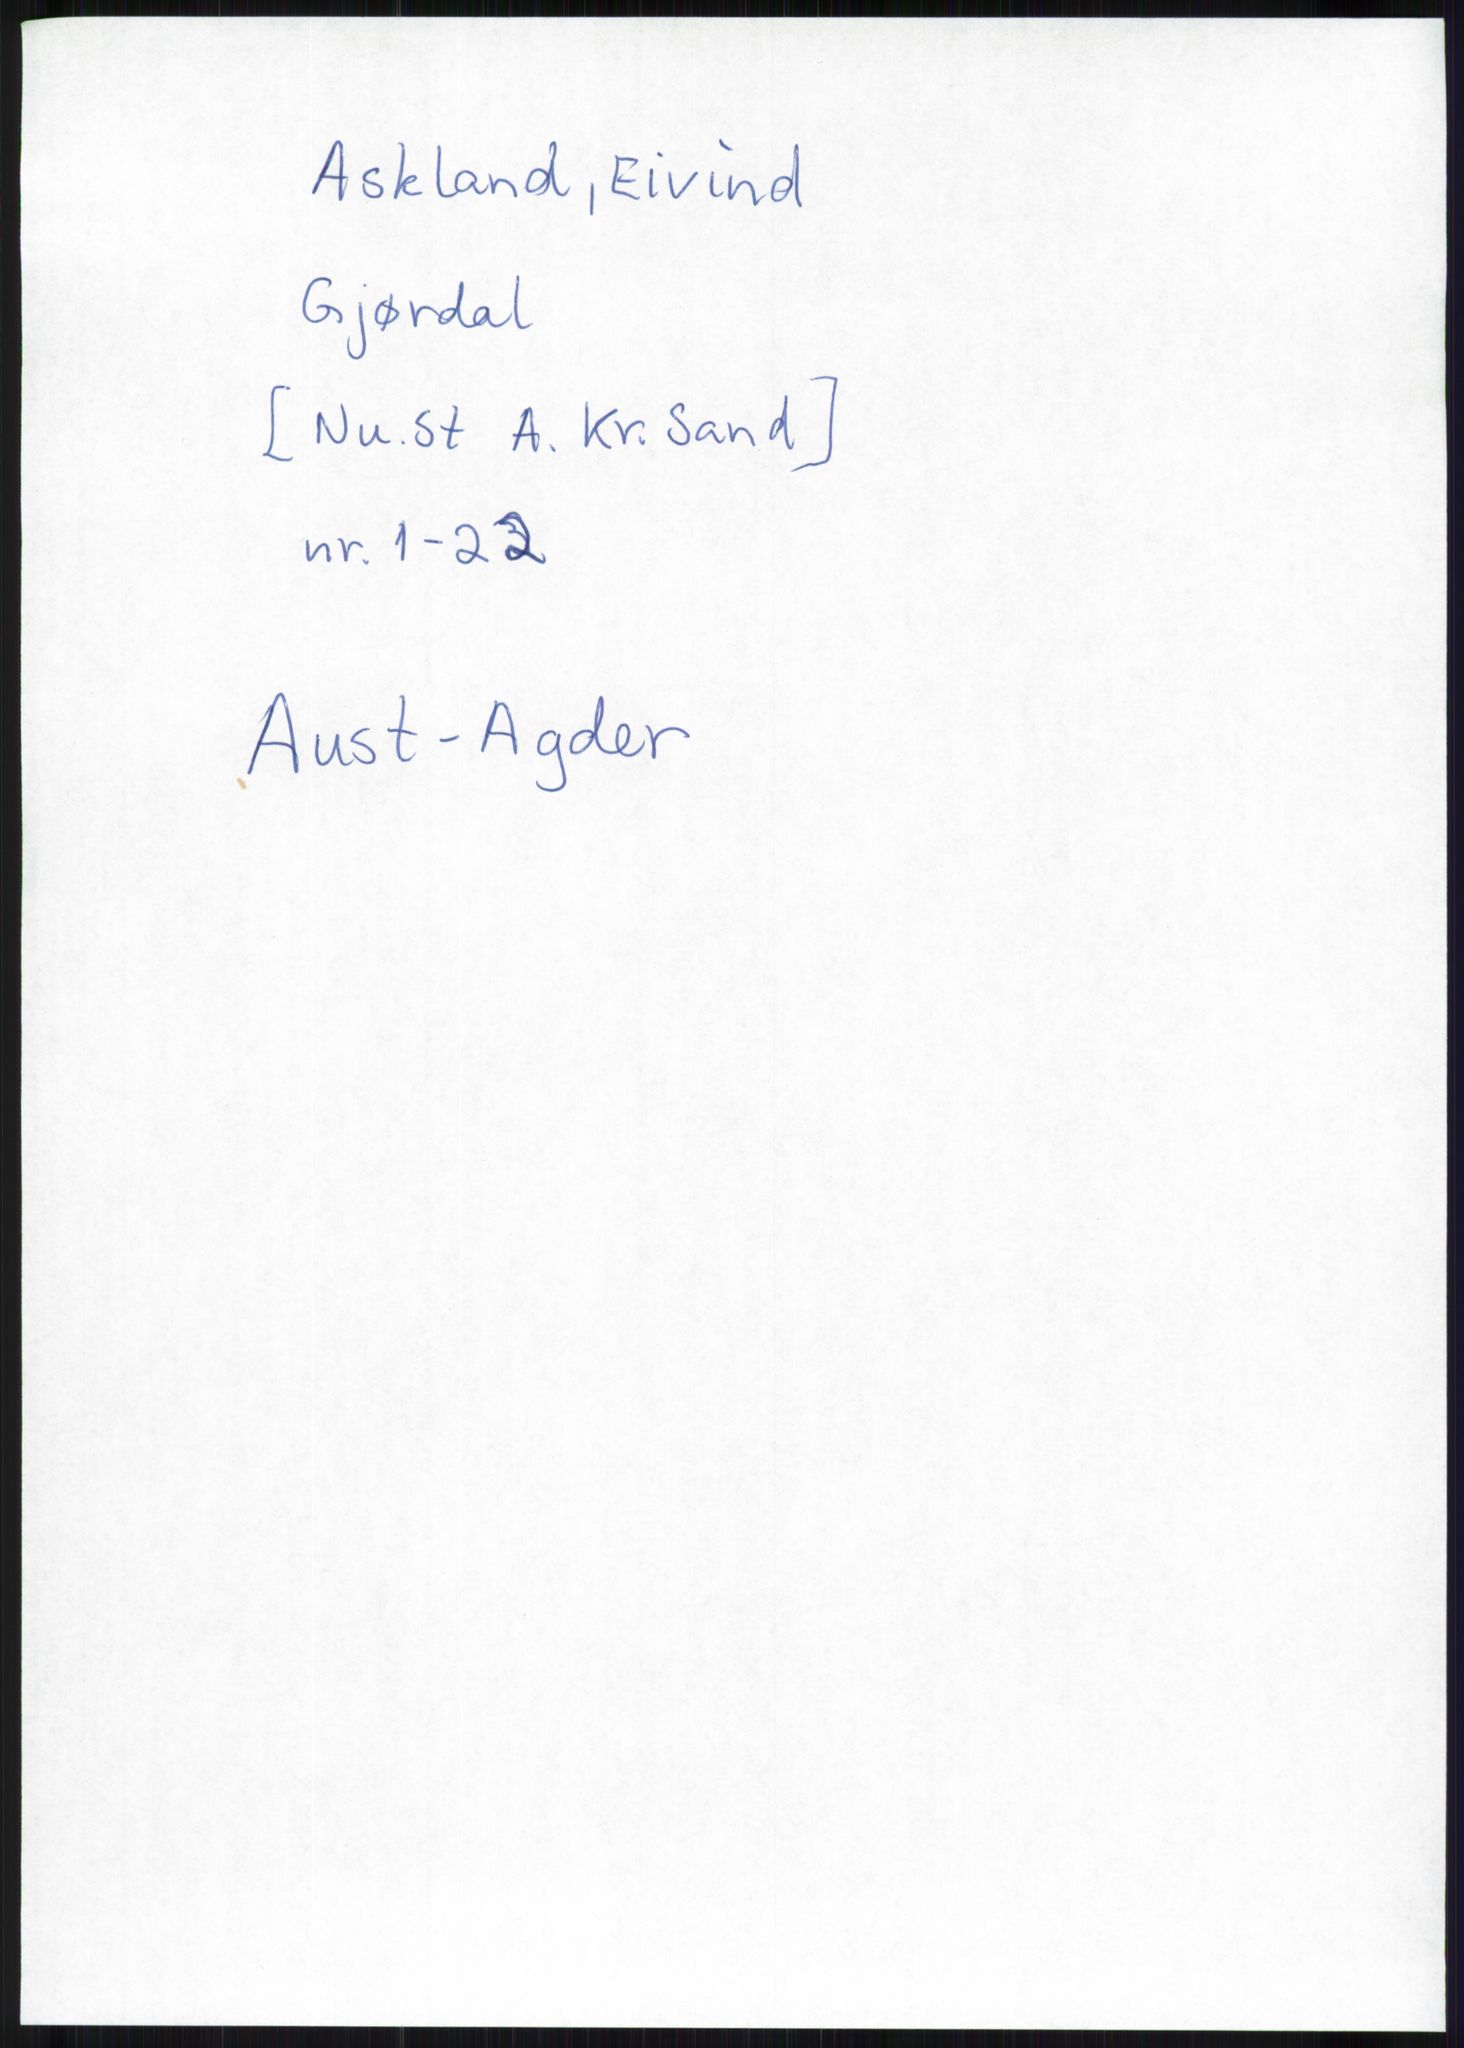 Askland, Eivind
Gjørdal
[Nu.st A. Kr. Sand]
nr. 1-22
Aust-Agder